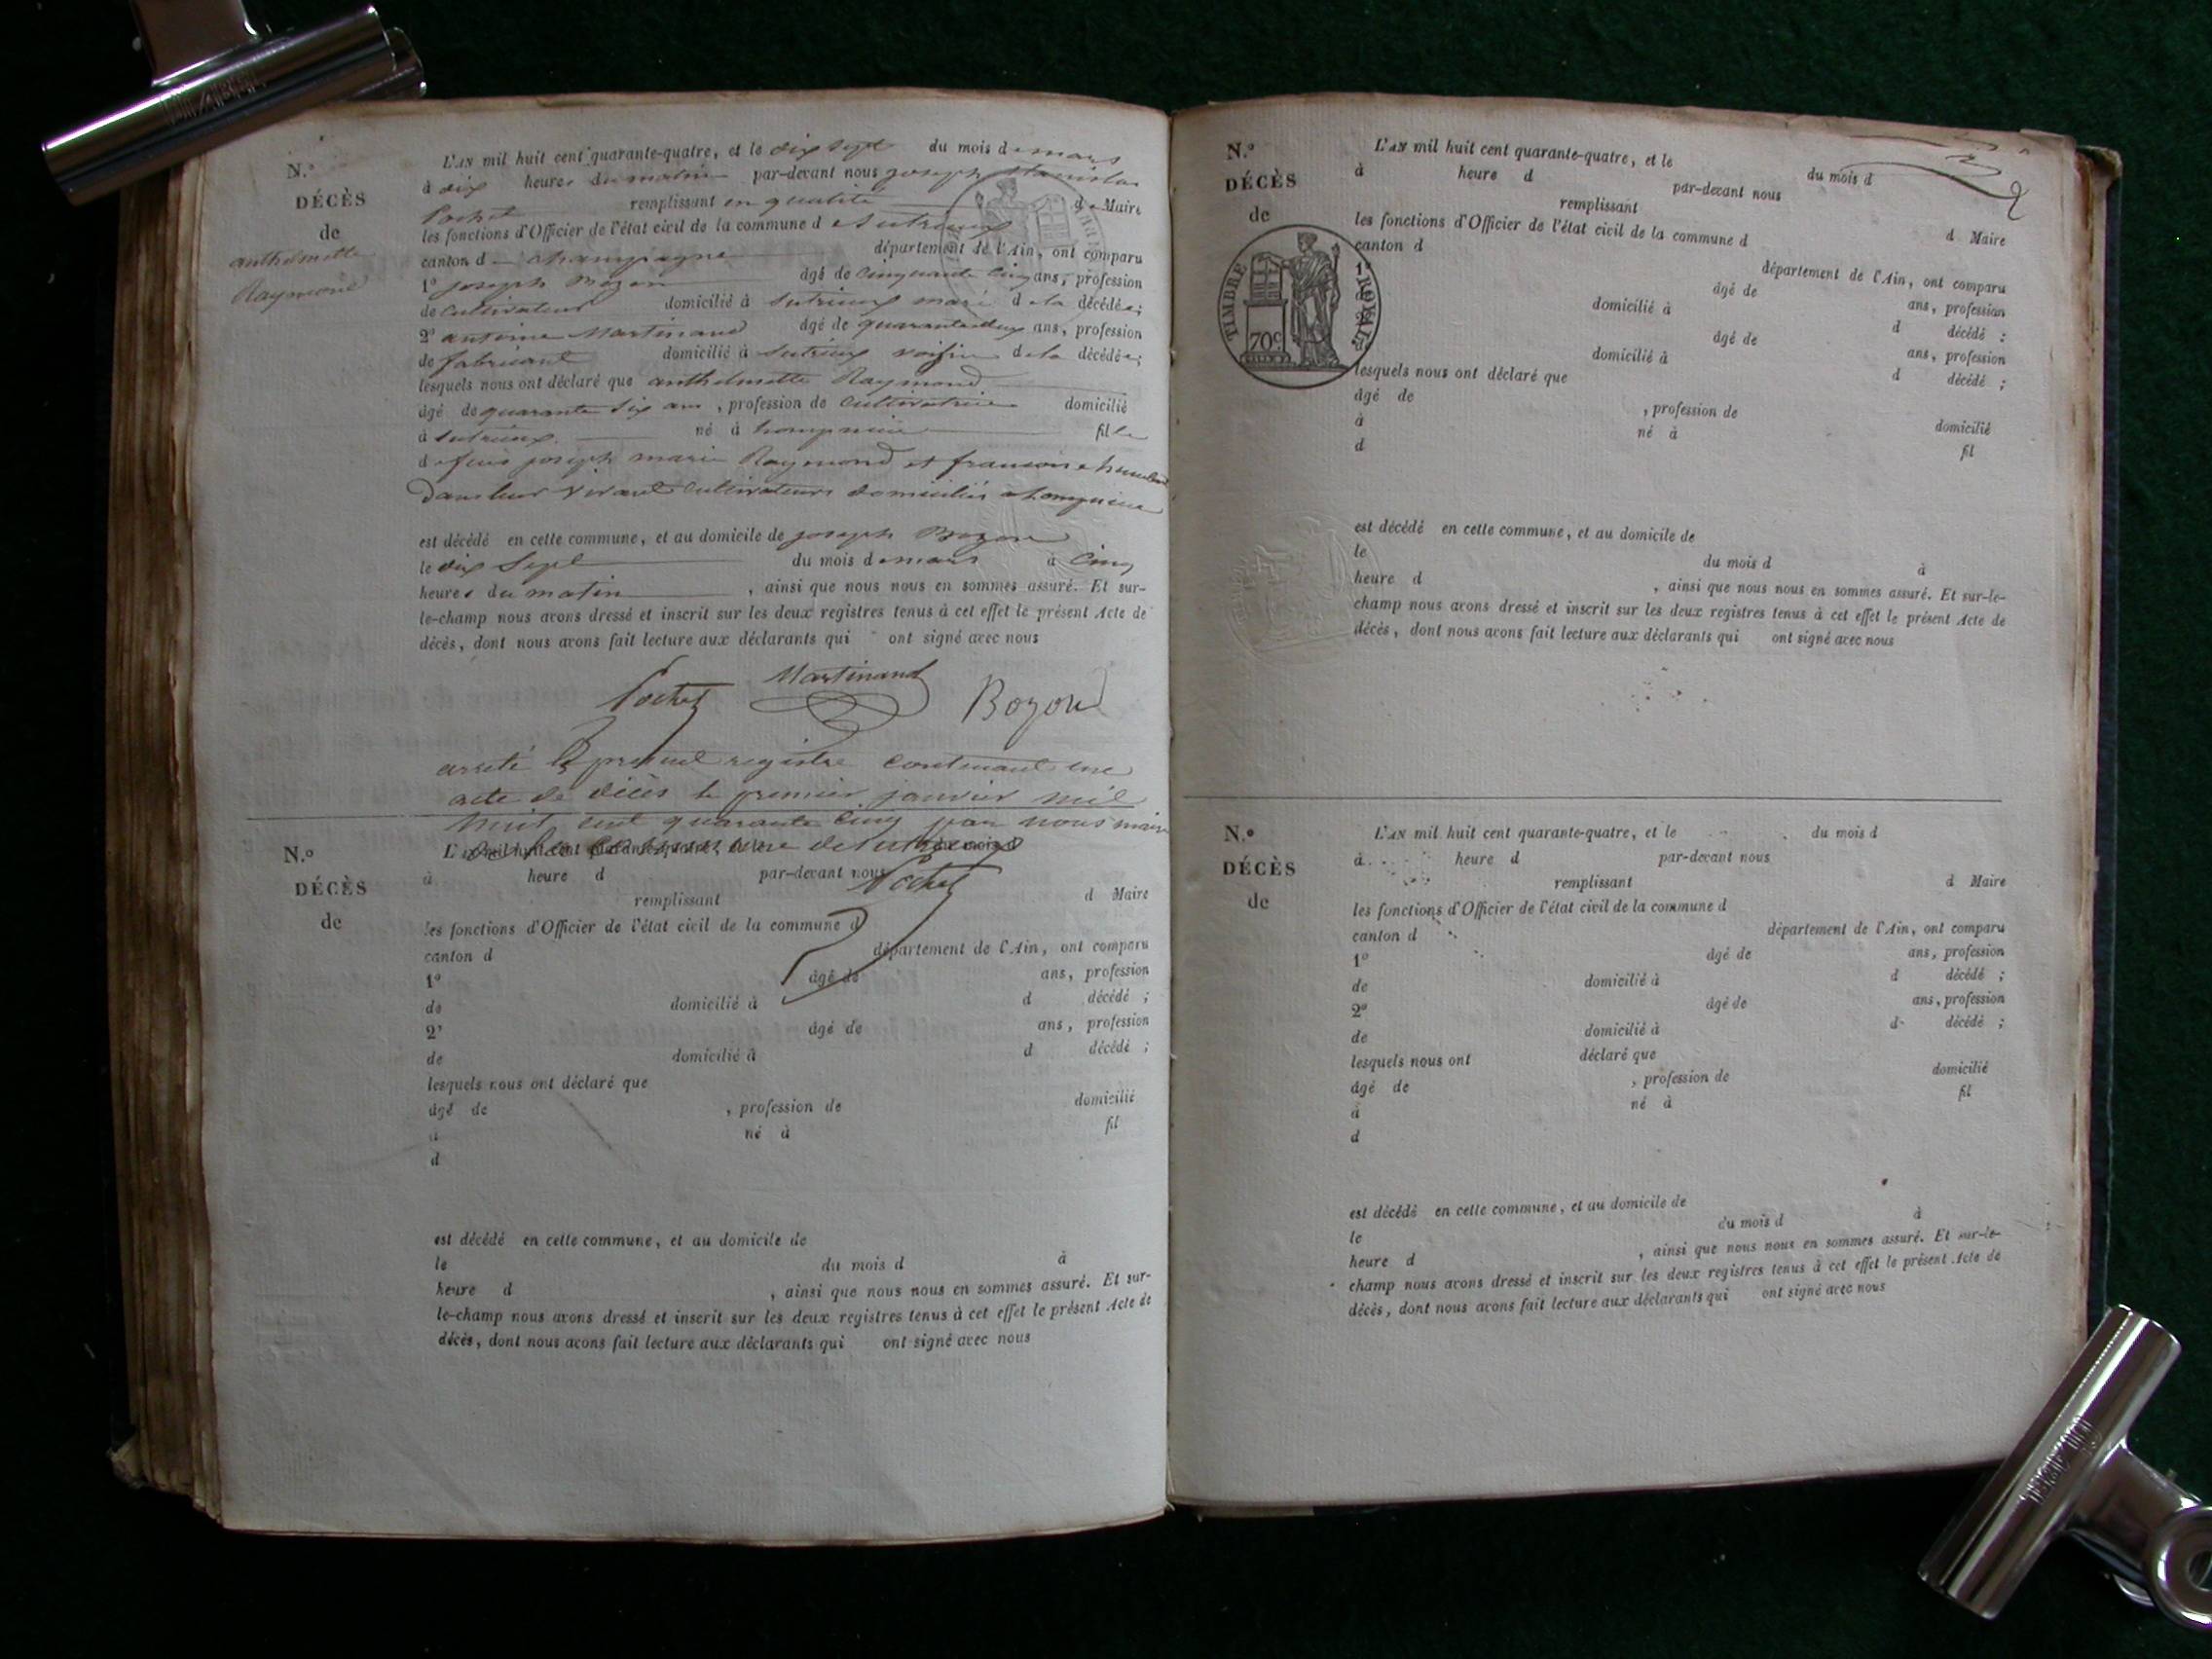 N.º
DÉCÈS
de
anthelmette
Raymond
L'AN mil huit cent quarante-quatre, et le dix sept du mois de mars
à dix heures du matin par-devant nous joseph Stanislas
Pochet remplissant en qualité de Maire
les fonctions d'Officier de l'état civil de la commune d Sutrieux
canton d champagne département de l'Ain, ont comparu
1º joseph Bozon âgé de cinquante cinq ans, profession
de cultivateur domicilié à Sutrieux mari de la décédée;
2º antoine Martinand âgé de quarante deux ans, profession
de fabricant domicilié à Sutrieux voisin de la décédée;
lesquels nous ont déclaré que anthelmette Raymond
âgé de quarante six ans, profession de Cultivatrice domicilié
à Sutrieux. né à fille
de feus joseph marie Raymond et francoise
Dans leur vivant Cultivateurs domiciliés
est décédé en cette commune, et au domicile de joseph Bozon
le dix Sept du mois de mars à Cinq
heures du matin, ainsi que nous nous en sommes assuré. Et sur-
le-champ nous avons dressé et inscrit sur les deux registres tenus à cet effet le présent Acte de
décès, dont nous avons fait lecture aux déclarants qui ont signé avec nous
Pochet Martinand Bozon
arreté le present registre contenant une
acte de décès le premier janvier mil
huit cent quarante cinq par nous maire
de la commune de Sutrieux
Pochet
N.º
DÉCÈS
de
L'AN mil huit cent quarante-quatre, et le du mois d
à heure d par-devant nous
remplissant d Maire
les fonctions d'Officier de l'état civil de la commune d
canton d département de l'Ain, ont comparu
1º âgé de ans, profession
de domicilié à d décédé ;
2º âgé de ans, profession
de domicilié à d décédé ;
lesquels nous ont déclaré que
âgé de , profession de domicilié
à né à fil
d
est décédé en cette commune, et au domicile de
le du mois d à
heure d , ainsi que nous nous en sommes assuré. Et sur-
le-champ nous avons dressé et inscrit sur les deux registres tenus à cet effet le présent Acte de
décès, dont nous avons fait lecture aux déclarants qui ont signé avec nous
N.º
DÉCÈS
de
TIMBRE ROYAL
70c
L'AN mil huit cent quarante-quatre, et le du mois d
à heure d par-devant nous
remplissant d Maire
les fonctions d'Officier de l'état civil de la commune d
canton d département de l'Ain, ont comparu
1º âgé de ans, profession
domicilié à d décédé ;
âgé de ans, profession
domicilié à d décédé ;
lesquels nous ont déclaré que
âgé de , profession de domicilié
à né à fil
d
est décédé en cette commune, et au domicile de
le du mois d à
heure d , ainsi que nous nous en sommes assuré. Et sur-le-
champ nous avons dressé et inscrit sur les deux registres tenus à cet effet le présent Acte de
décès, dont nous avons fait lecture aux déclarants qui ont signé avec nous
N.º
DÉCÈS
de
L'AN mil huit cent quarante-quatre, et le du mois d
à heure d par-devant nous
remplissant d Maire
les fonctions d'Officier de l'état civil de la commune d
canton d département de l'Ain, ont comparu
1º âgé de ans, profession
de domicilié à d décédé ;
2º âgé de ans, profession
de domicilié à d décédé ;
lesquels nous ont déclaré que
âgé de , profession de domicilié
à né à fil
d
est décédé en cette commune, et au domicile de
le du mois d à
heure d , ainsi que nous nous en sommes assuré. Et sur-le-
champ nous avons dressé et inscrit sur les deux registres tenus à cet effet le présent Acte de
décès, dont nous avons fait lecture aux déclarants qui ont signé avec nous